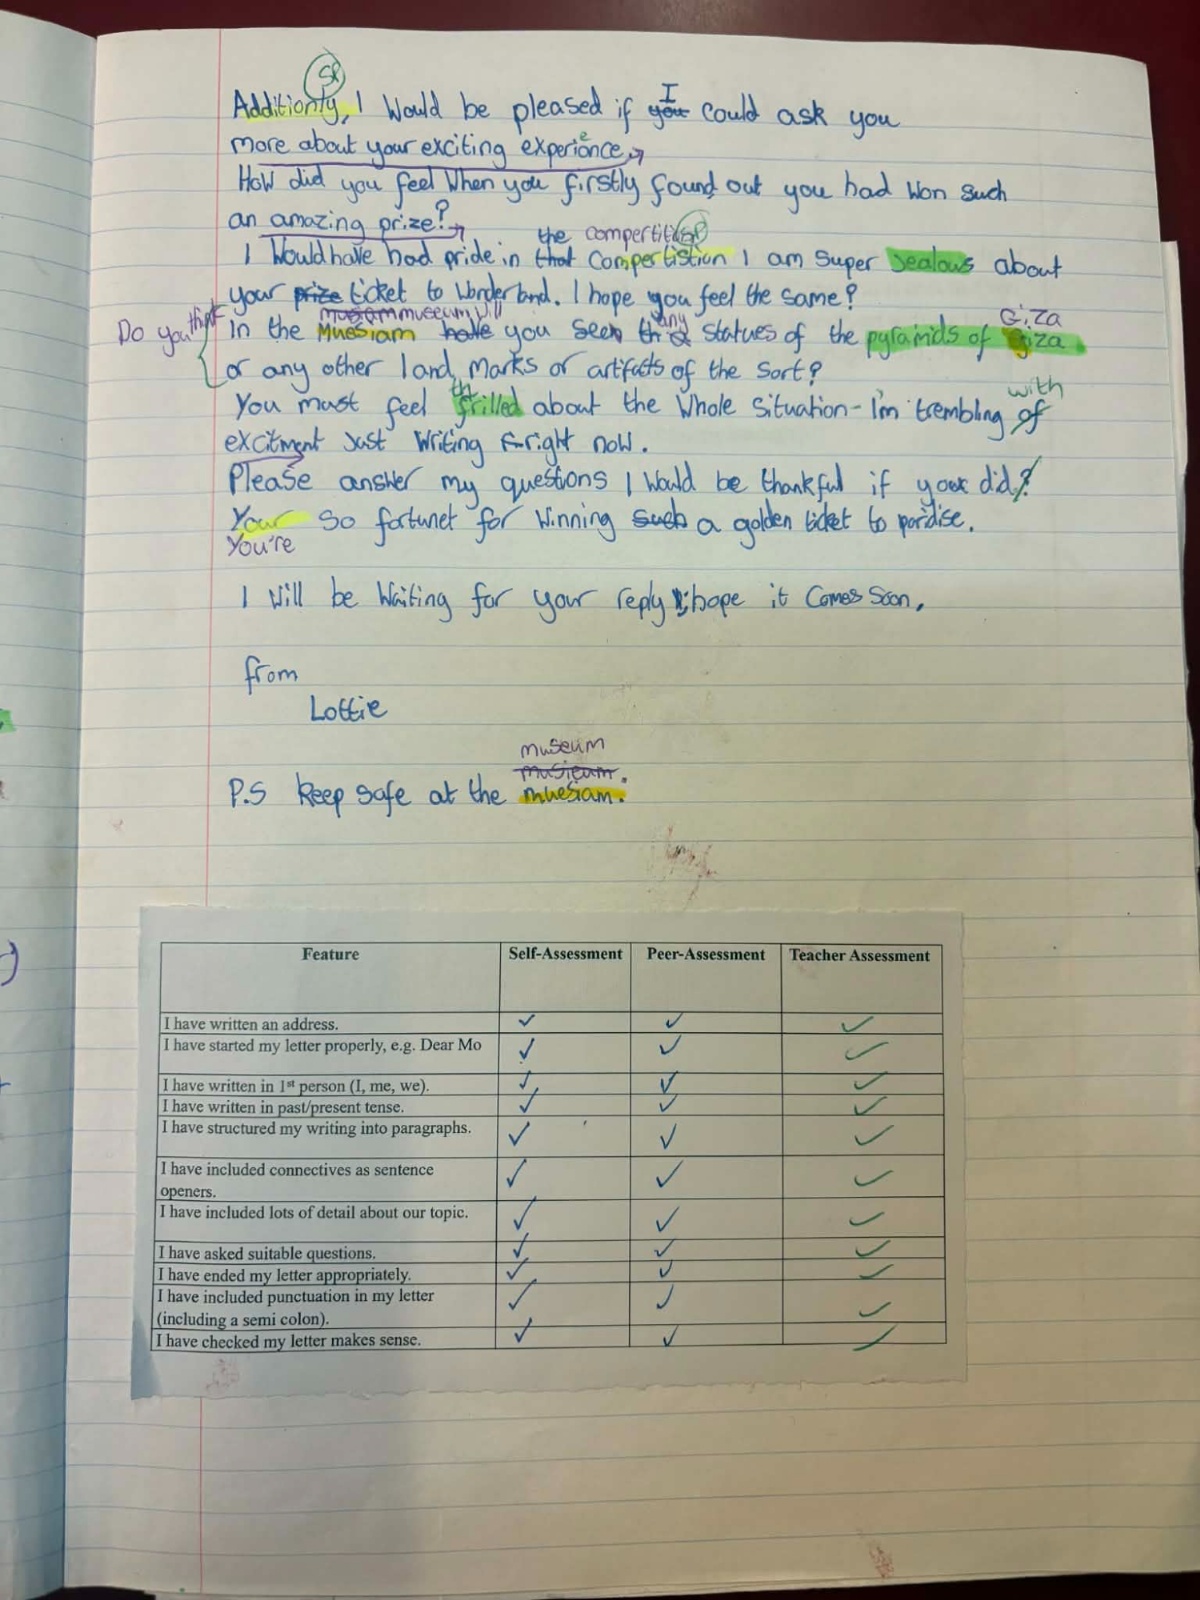 SP
Additionly, I Would be pleased if you I could ask you
more about your exciting experience.
How did you feel When you firstly found out you had Won such
an amazing prize?
the compertiti SP
I Would have had pride in that Compertistion I am Super Jealous about
your prize ticket to Wonderland. I hope you feel the same?
museum Will any Giza
Do you think In the Muesiam have you seen statues of the pyramids of Giza
or any other land marks or artifacts of the Sort?
th with
You must feel frilled about the Whole Situation - I'm trembling of
excitment Just Writing right now.
Please answer my questions I Would be thankful if you did?
Your So fortunet for Winning such a golden ticket to paridise.
You're
I Will be Waiting for your reply ; hope it Comes Soon.
from
Lottie
museum
musieum.
P.S keep safe at the muesiam.
Feature Self-Assessment Peer-Assessment Teacher Assessment
I have written an address. ✓ ✓ ✓
I have started my letter properly, e.g. Dear Mo ✓ ✓ ✓
I have written in 1st person (I, me, we). ✓ ✓ ✓
I have written in past/present tense. ✓ ✓ ✓
I have structured my writing into paragraphs. ✓ ✓ ✓
I have included connectives as sentence ✓ ✓ ✓
openers.
I have included lots of detail about our topic. ✓ ✓ ✓
I have asked suitable questions. ✓ ✓ ✓
I have ended my letter appropriately. ✓ ✓ ✓
I have included punctuation in my letter ✓ ✓ ✓
(including a semi colon).
I have checked my letter makes sense. ✓ ✓ ✓